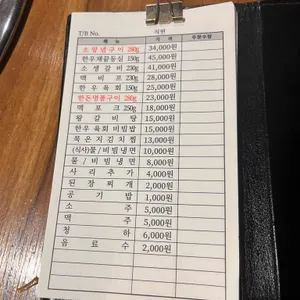 T/B No. 직원
메 뉴 가 격 주문수량
소양념구이 280g 34,000원
한우채끝등심 150g 45,000원
소생갈비 280g 41,000원
맥비프 230g 28,000원
한우육회 150g 25,000원
한돈명품구이 280g 23,000원
맥포크 250g 18,000원
왕갈비탕 15,000원
한우 육회 비빔밥 15,000원
묵은지김치찜 13,000원
(식사)물/비빔냉면 10,000원
물/비빔냉면 8,000원
사리추가 4,000원
된장찌개 2,000원
공기밥 1,000원
소주 5,000원
맥주 5,000원
청하 6,000원
음료수 2,000원